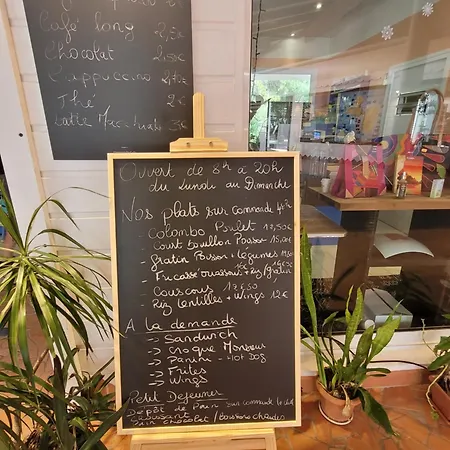 Café long 2,50€
Chocolat 2,50€
Cappuccino 2,70€
Thé 2€
Latte Macchiato 3€
Ouvert de 8h à 20h
du Lundi au Dimanche
Nos plats sur Commande
- Colombo Poulet 12,50€
- Court bouillon Poisson 15,00€
- Gratin Poisson + légumes
- Fricassé + Riz/gratin
Couscous 17€50
- Riz lentilles + wings 12€
A la demande
-> Sandwich
-> Croque Monsieur
-> Panini - Hot Dog
-> Frites
-> Wings
Petit Dejeuner
Dépôt de Pain sur commande
Croissant
Pain chocolat / Boissons chaudes